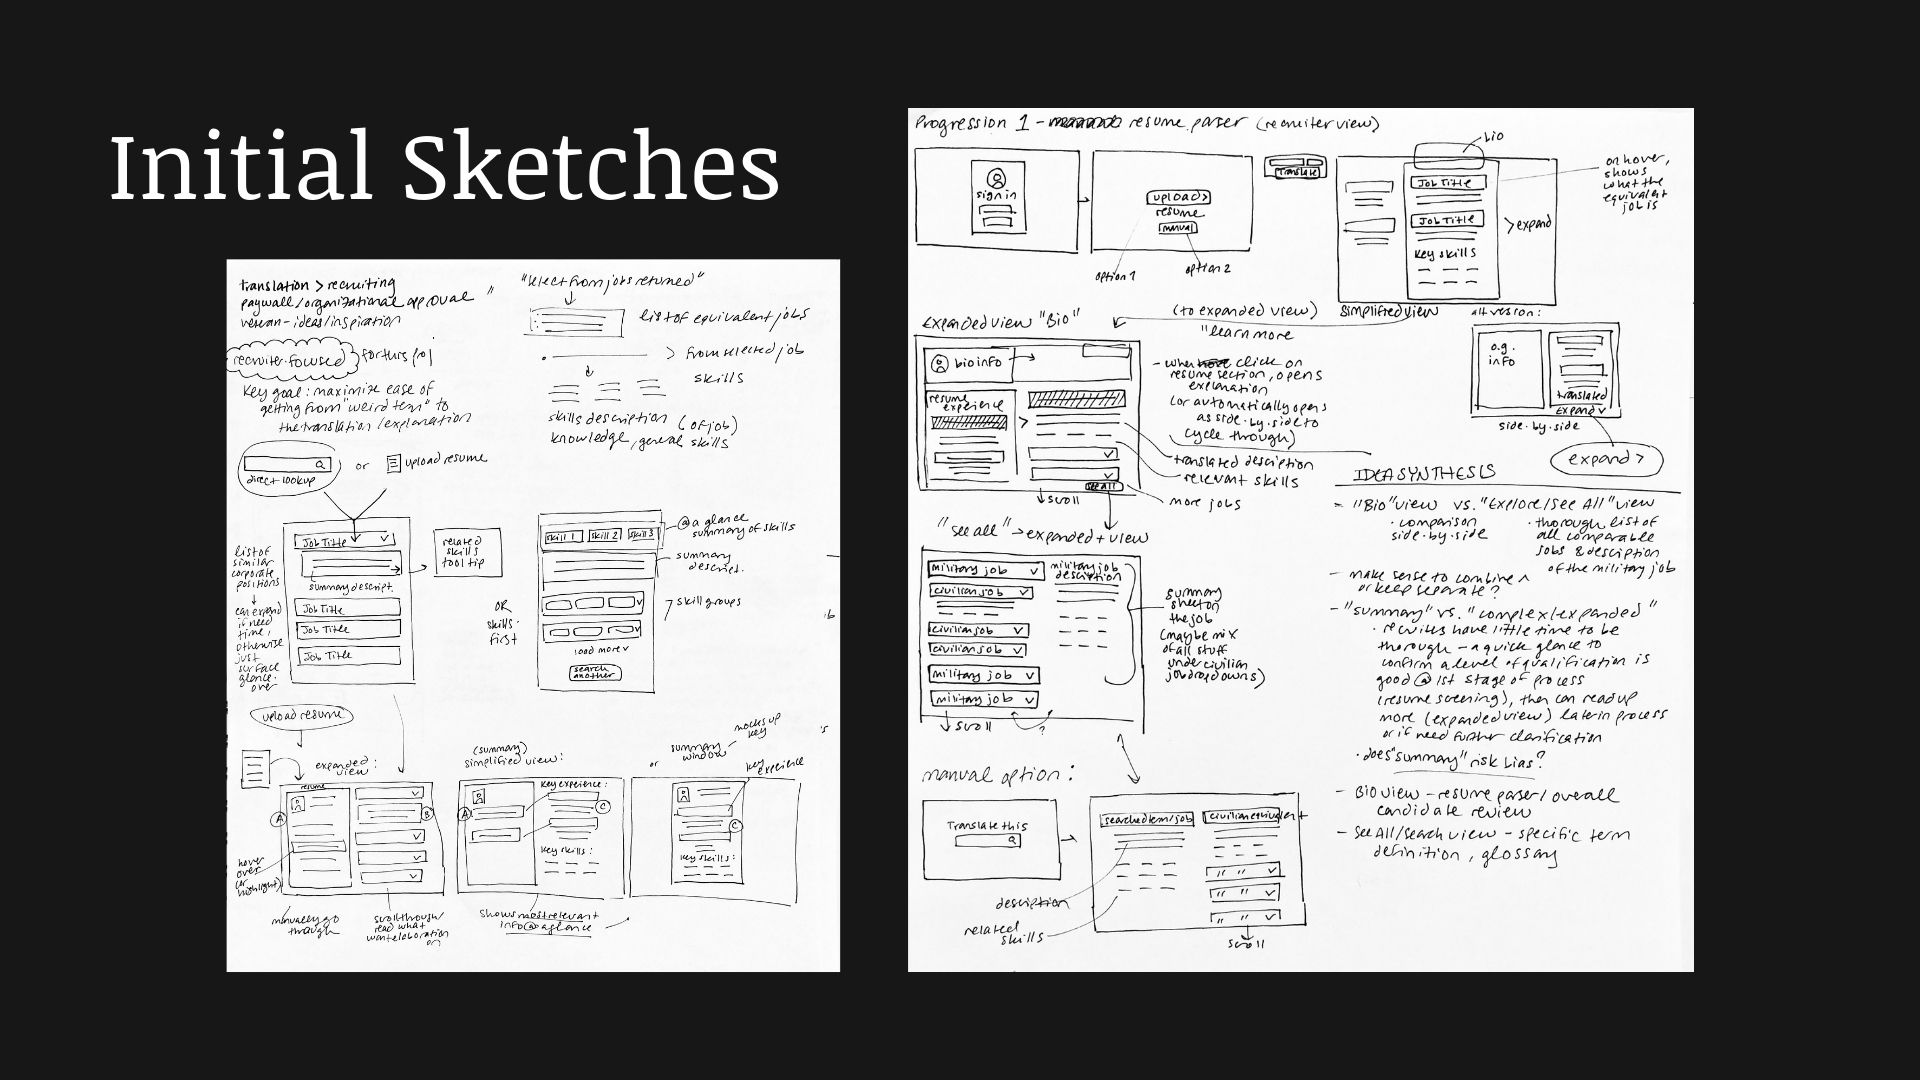 Initial Sketches
translation > recruiting
paywall/organizational approval
veteran - ideas/inspiration
"select from jobs returned"
list of equivalent jobs
> from selected job
skills
skills description (of job)
knowledge, general skills
recruiter-focused for this proj
key goal: maximize ease of
getting from "weird term" to
the translation/explanation
direct lookup
or
upload resume
list of
similar
corporate
positions
can expand
if need
time,
otherwise
just
surface
glance-
over
Job Title
summary descript.
Job Title
Job Title
Job Title
related
skills
tool tip
OR
skills-
first
skill 1 skill 2 skill 3
@ a glance
summary of skills
summary
descript.
skill groups
load more
search
another
upload resume
expanded
view:
resume
A
B
hover
over
(or
highlight)
manually go
through
scroll through/
read what
want elaboration
on
(summary)
simplified view:
key experience:
A
C
key skills:
shows most relevant
info @ a glance
or
summary
window
mocks up
key
key experience
C
key skills:
Progression 1 - resume parser (recruiter view)
sign in
upload >
resume
manual
option 1
option 2
Translate
bio
Job Title
Job Title
key skills
> expand
on hover,
shows
what the
equivalent
job is
simplified view
(to expanded view)
"learn more
alt version:
o.g.
info
translated
expand v
side-by-side
expand >
Expanded view "Bio"
bio info
resume
experience
see all
scroll
- when click on
resume section, opens
explanation
(or automatically opens
as side-by-side to
cycle through)
translated description
relevant skills
more jobs
"see all" → expanded + view
military job
civilian job
civilian job
civilian job
military job
military job
military job
description
scroll
?
summary
sheet on
the job
(maybe mix
of all stuff
under civilian
job dropdowns)
manual option:
Translate this
searched term/job
civilian equivalent
" "
" "
" "
description
related
skills
scroll
IDEA SYNTHESIS
- "Bio" view vs. "Explore/See All" view
· comparison
side-by-side
· thorough list of
all comparable
jobs & description
of the military job
- make sense to combine ^
or keep separate?
- "summary" vs. "complex/expanded"
· recruiters have little time to be
thorough - a quick glance to
confirm a level of qualification is
good @ 1st stage of process
(resume screening), then can read up
more (expanded view) later in process
or if need further clarification
· does "summary" risk bias?
- Bio view - resume parser/overall
candidate review
- See All/Search view - specific term
definition, glossary